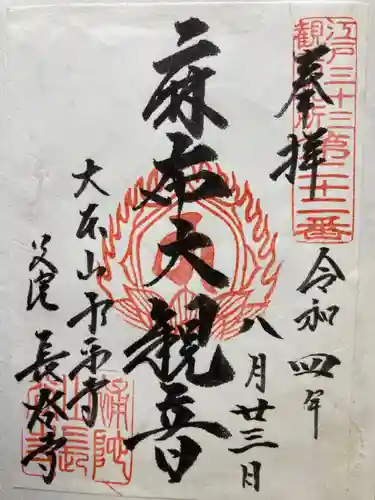 奉拝
江戸三十三
観音札所第二十二番
令和四年
八月廿三日
麻布大観音
大本山永平寺
別院 長谷寺